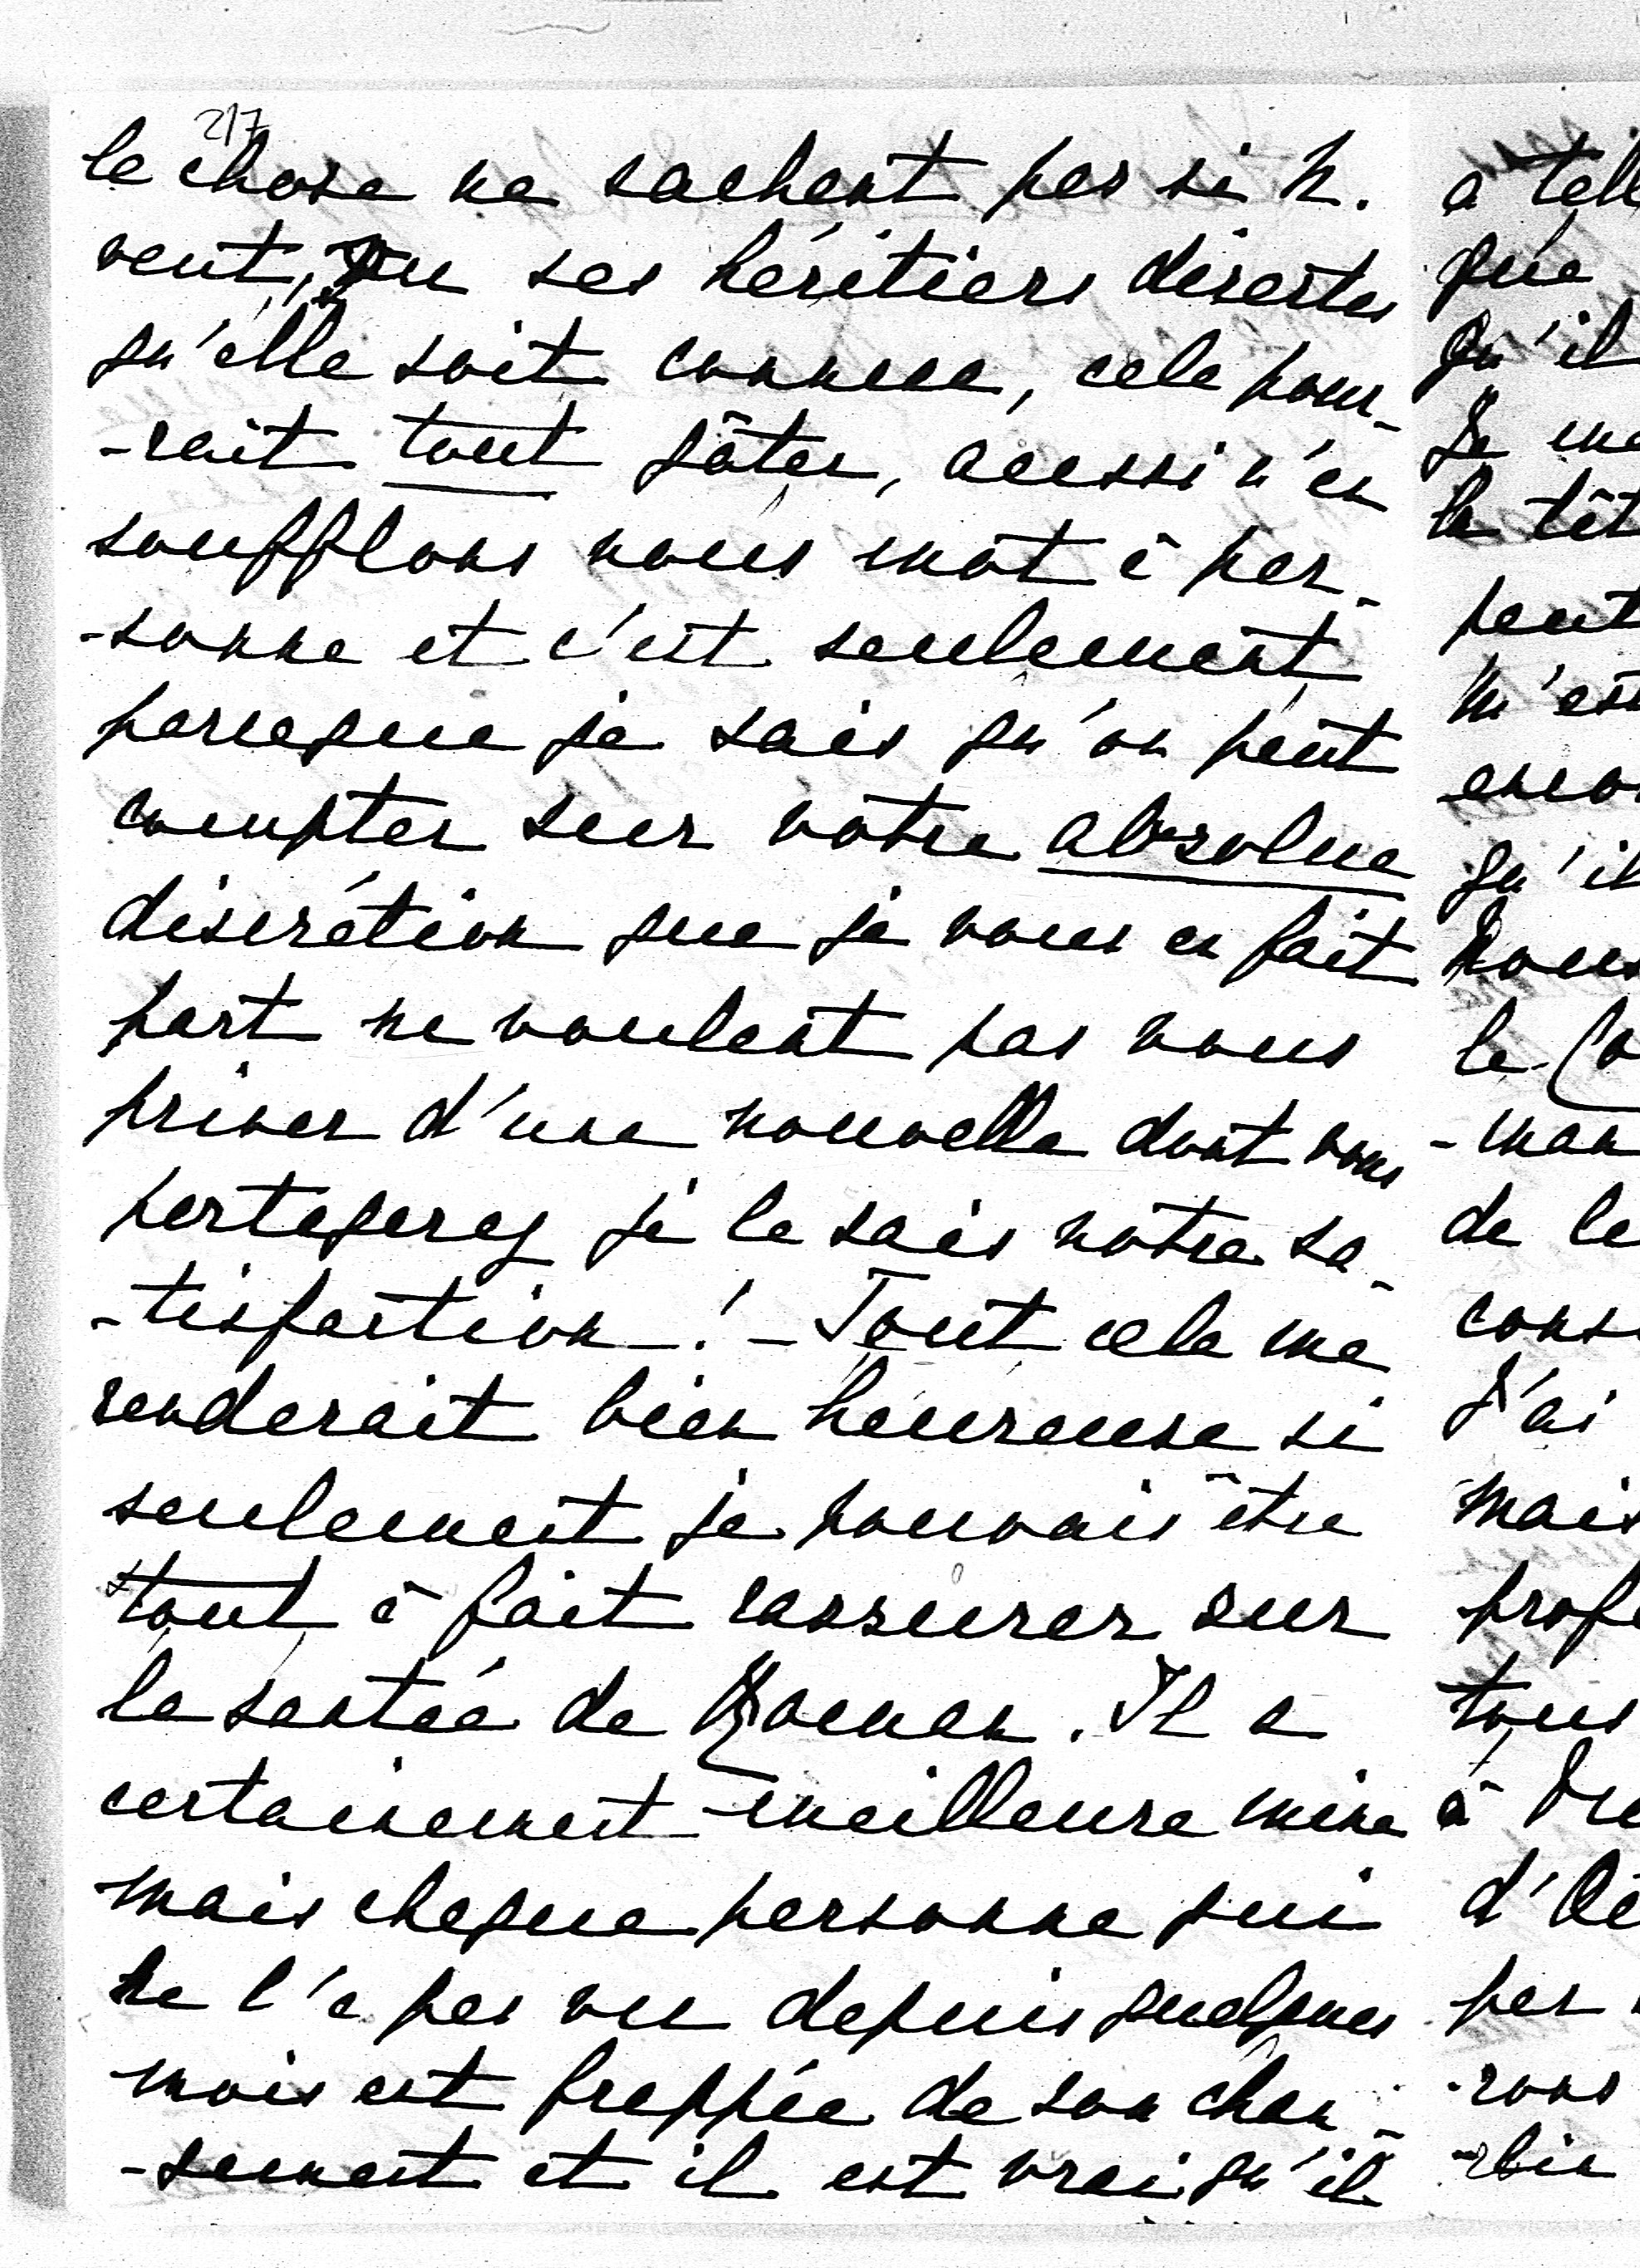 217
la chose ne sachent pas si N.
veut, ou ses héritiers
qu'elle soit connue, cela pour-
-rait tout gâter, aussi n'en
soufflons nous mot à per-
-sonne et c'est seulement
parceque je sais qu'on peut
compter sur votre absolue
discrétion que je vous en fait
part ne voulant pas vous
priver d'une nouvelle dont vous
partagerez je le sais notre sa-
-tisfaction! - Tout cela me
renderait bien heureuse si
seulement je pouvais être
tout à fait rassurer sur
la santée de Roman. Il a
certainement meilleure mine
mais chaque personne qui
ne l'a pas vu depuis quelques
mois est frappée de son chan-
-gement et il est vrai qu'il
a tell
que
qu'il
Je me
la têt
peut
m'est
enco
qu'il
Nous
le Co
-man
de la
cons
J'ai
mais
profi
tous
à
d'
par
-rons